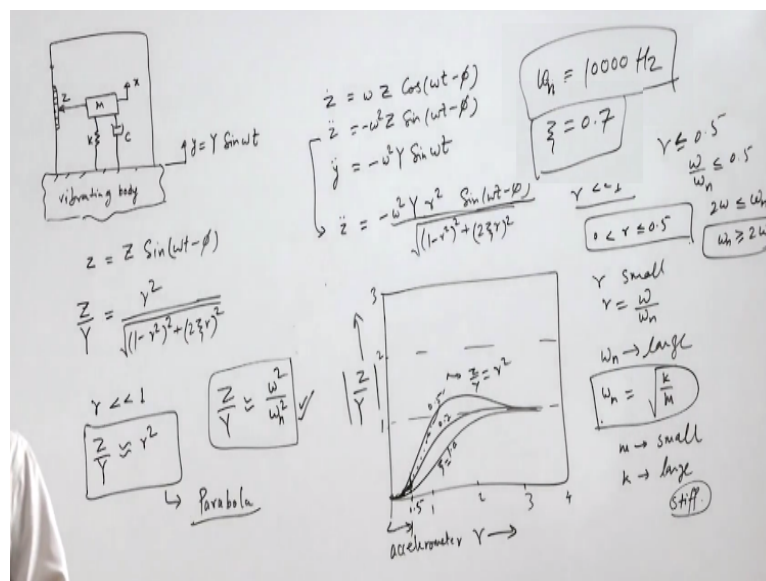 z
M
x
k
C
y = Y Sin ωt
vibrating body
z = Z Sin(ωt-φ)
Z/Y = r²/√((1-r²)²+(2ξr)²)
r << 1
Z/Y ≈ r²
↳ Parabola
Z/Y ≈ ω²/ωn² ✓
ż = ω Z Cos(ωt-φ)
z̈ = -ω² Z Sin(ωt-φ)
ÿ = -ω² Y Sin ωt
z̈ = -ω² Y r² Sin(ωt-φ)/√((1-r²)²+(2ξr)²)
ωn = 10000 Hz
ξ = 0.7
r ≤ 0.5
ω/ωn ≤ 0.5
2ω ≤ ωn
ωn ≥ 2ω
r << 1
0 < r ≤ 0.5
r small
r = ω/ωn
ωn → large
ωn = √(k/M)
m → small
k → large
stiff.
3
2
1
|Z/Y|
Z/Y = r²
0.5
0.7
ξ=1.0
.5 1 2 3 4
accelerometer r →